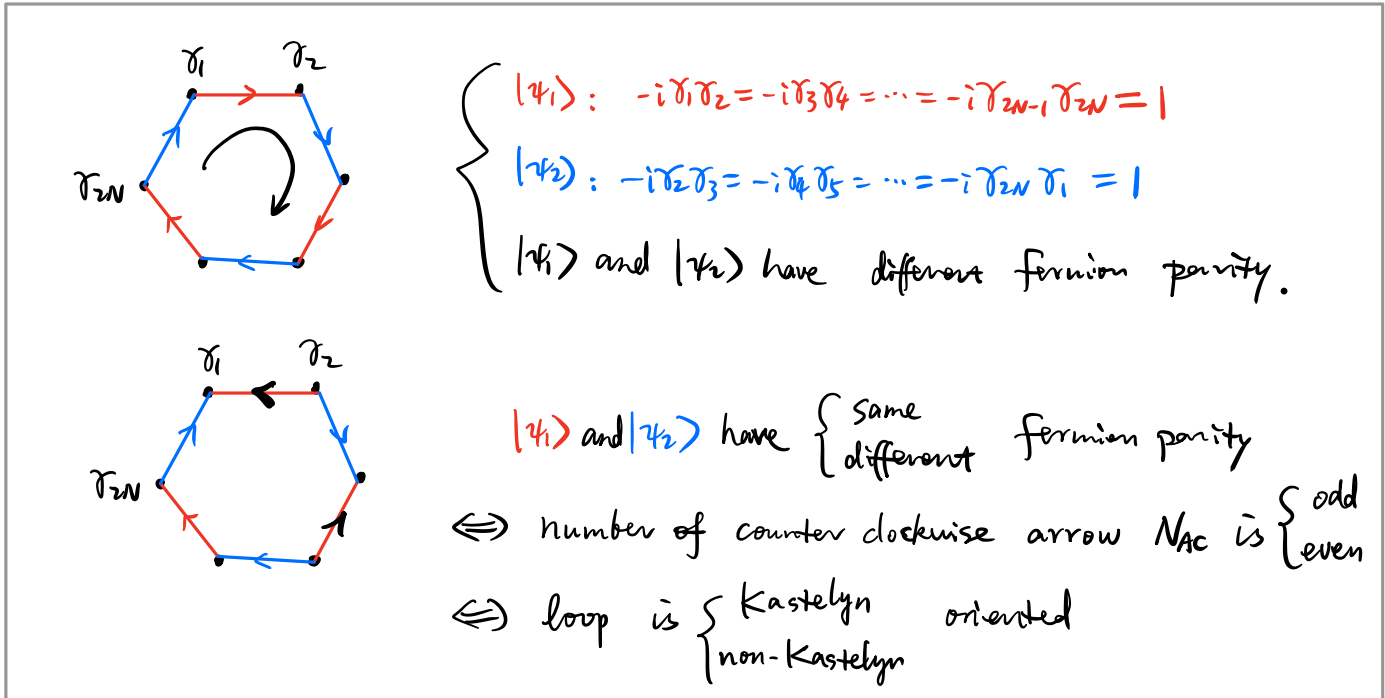 γ₁ γ₂
γ₂N
|ψ₁⟩ : -iγ₁γ₂ = -iγ₃γ₄ = ⋯ = -iγ₂N₋₁γ₂N = 1
|ψ₂⟩ : -iγ₂γ₃ = -iγ₄γ₅ = ⋯ = -iγ₂Nγ₁ = 1
|ψ₁⟩ and |ψ₂⟩ have different fermion parity.
γ₁ γ₂
γ₂N
|ψ₁⟩ and |ψ₂⟩ have { same
different
fermion parity
⇔ number of counter clockwise arrow N_AC is { odd
even
⇔ loop is { Kastelyn
non-Kastelyn
oriented